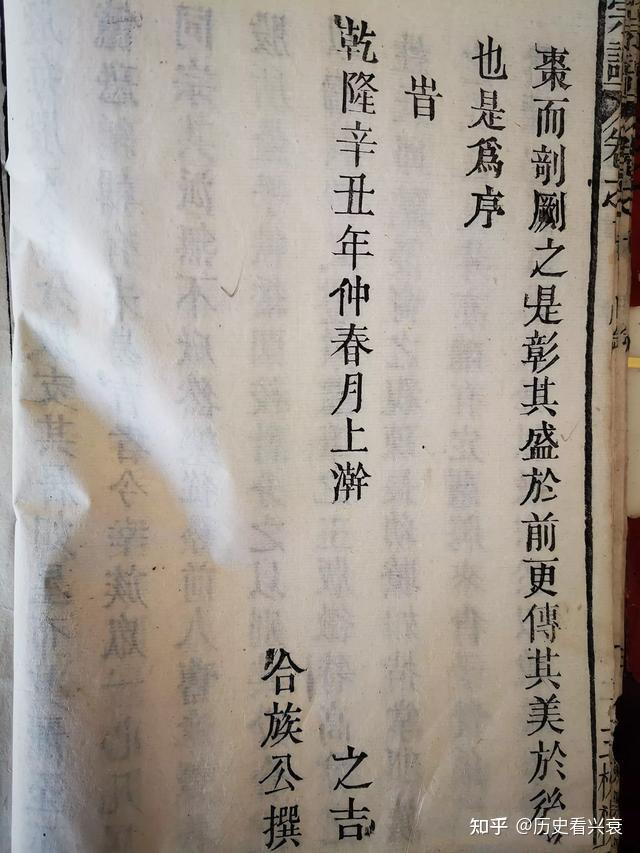 宗譜 卷之
棗而剞劂之是彰其盛於前更傳其美於後
也是爲序
旹
乾隆辛丑年仲春月上澣 之吉
合族公撰
知乎 @历史看兴衰